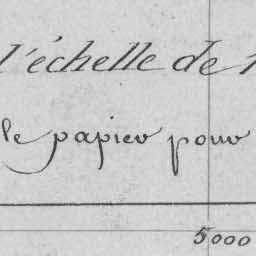 l'échelle de 1
le papier pour
5000